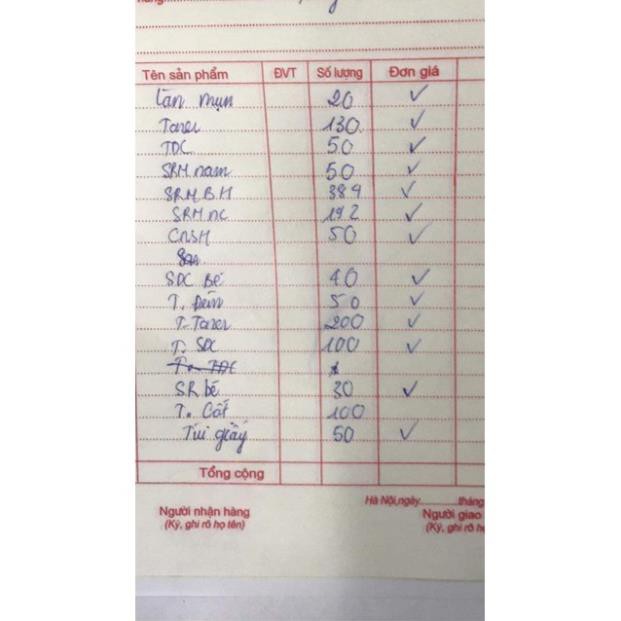 Tên sản phẩm ĐVT Số lượng Đơn giá
Lăn mụn 20 ✓
Toner 130 ✓
TDC 50 ✓
SRM nam 50 ✓
SRM B.H 384 ✓
SRM n.c 192 ✓
CNSH 50 ✓
SDC Bé 40 ✓
T. 50 ✓
T. Toner 200 ✓
T. SDC 100 ✓
T. TDC
SR bé 30 ✓
T. Cát 100
Túi giấy 50 ✓
Tổng cộng
Người nhận hàng
(Ký, ghi rõ họ tên)
Hà Nội, ngày.............tháng
Người giao
(Ký, ghi rõ